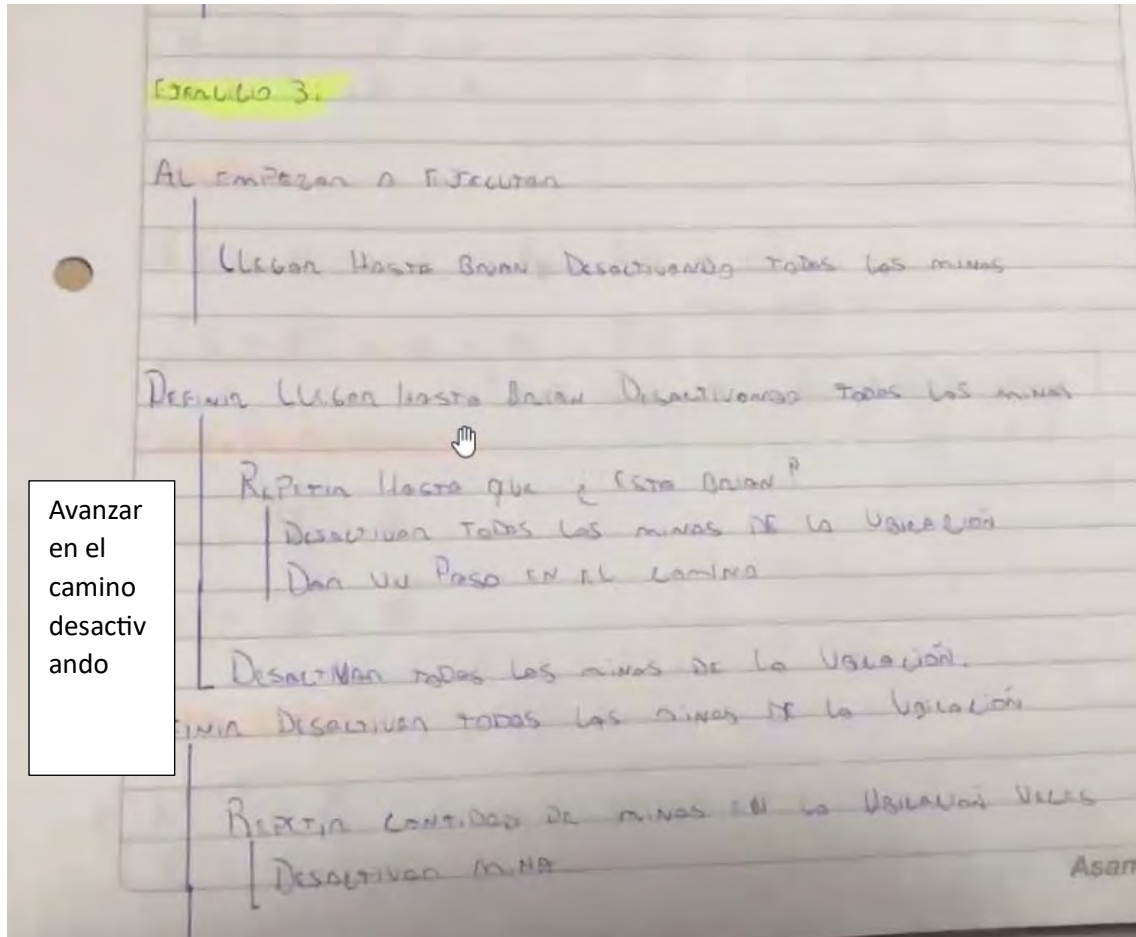 EJERCICIO 3:
AL EMPEZAR A EJECUTAR
LLEGAR HASTA BRIAN DESACTIVANDO TODAS LAS MINAS
DEFINIR LLEGAR HASTA BRIAN DESACTIVANDO TODAS LAS MINAS
REPETIR HASTA QUE ¿ESTA BRIAN?
DESACTIVAR TODAS LAS MINAS DE LA UBICACIÓN
DAR UN PASO EN EL CAMINO
Avanzar
en el
camino
desactiv
ando
DESACTIVAR TODAS LAS MINAS DE LA UBICACIÓN.
INIR DESACTIVAR TODAS LAS MINAS DE LA UBICACIÓN
REPETIR CANTIDAD DE MINAS EN LA UBICACION VECES
DESACTIVAR MINA
Asam